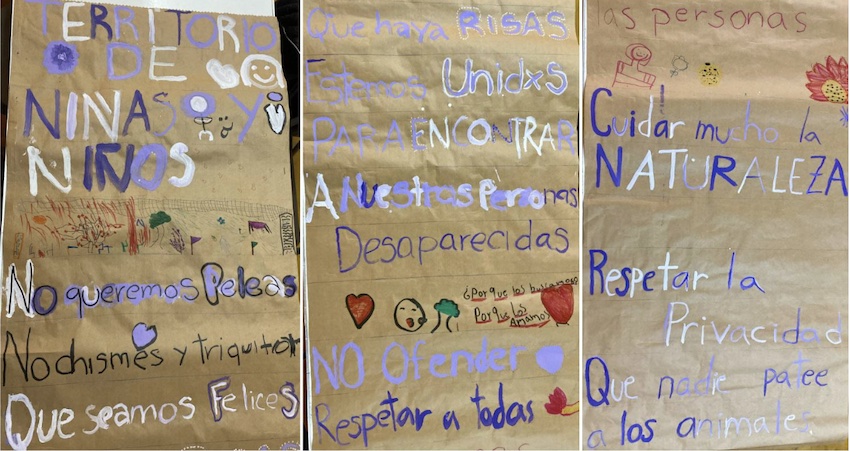 TERRITORIO
DE
NIÑAS Y
NIÑOS
No queremos Peleas
No chismes y triquitar
Que seamos Felices
Que haya RISAS
Estemos UnidxS
PARA ENCONTRAR
A Nuestras Personas
Desaparecidas
¿Porque los buscamos?
Porque los
Amamos
NO Ofender
Respetar a todas
las personas
Cuidar mucho la
NATURALEZA
Respetar la
Privacidad
Que nadie patee
a los animales.